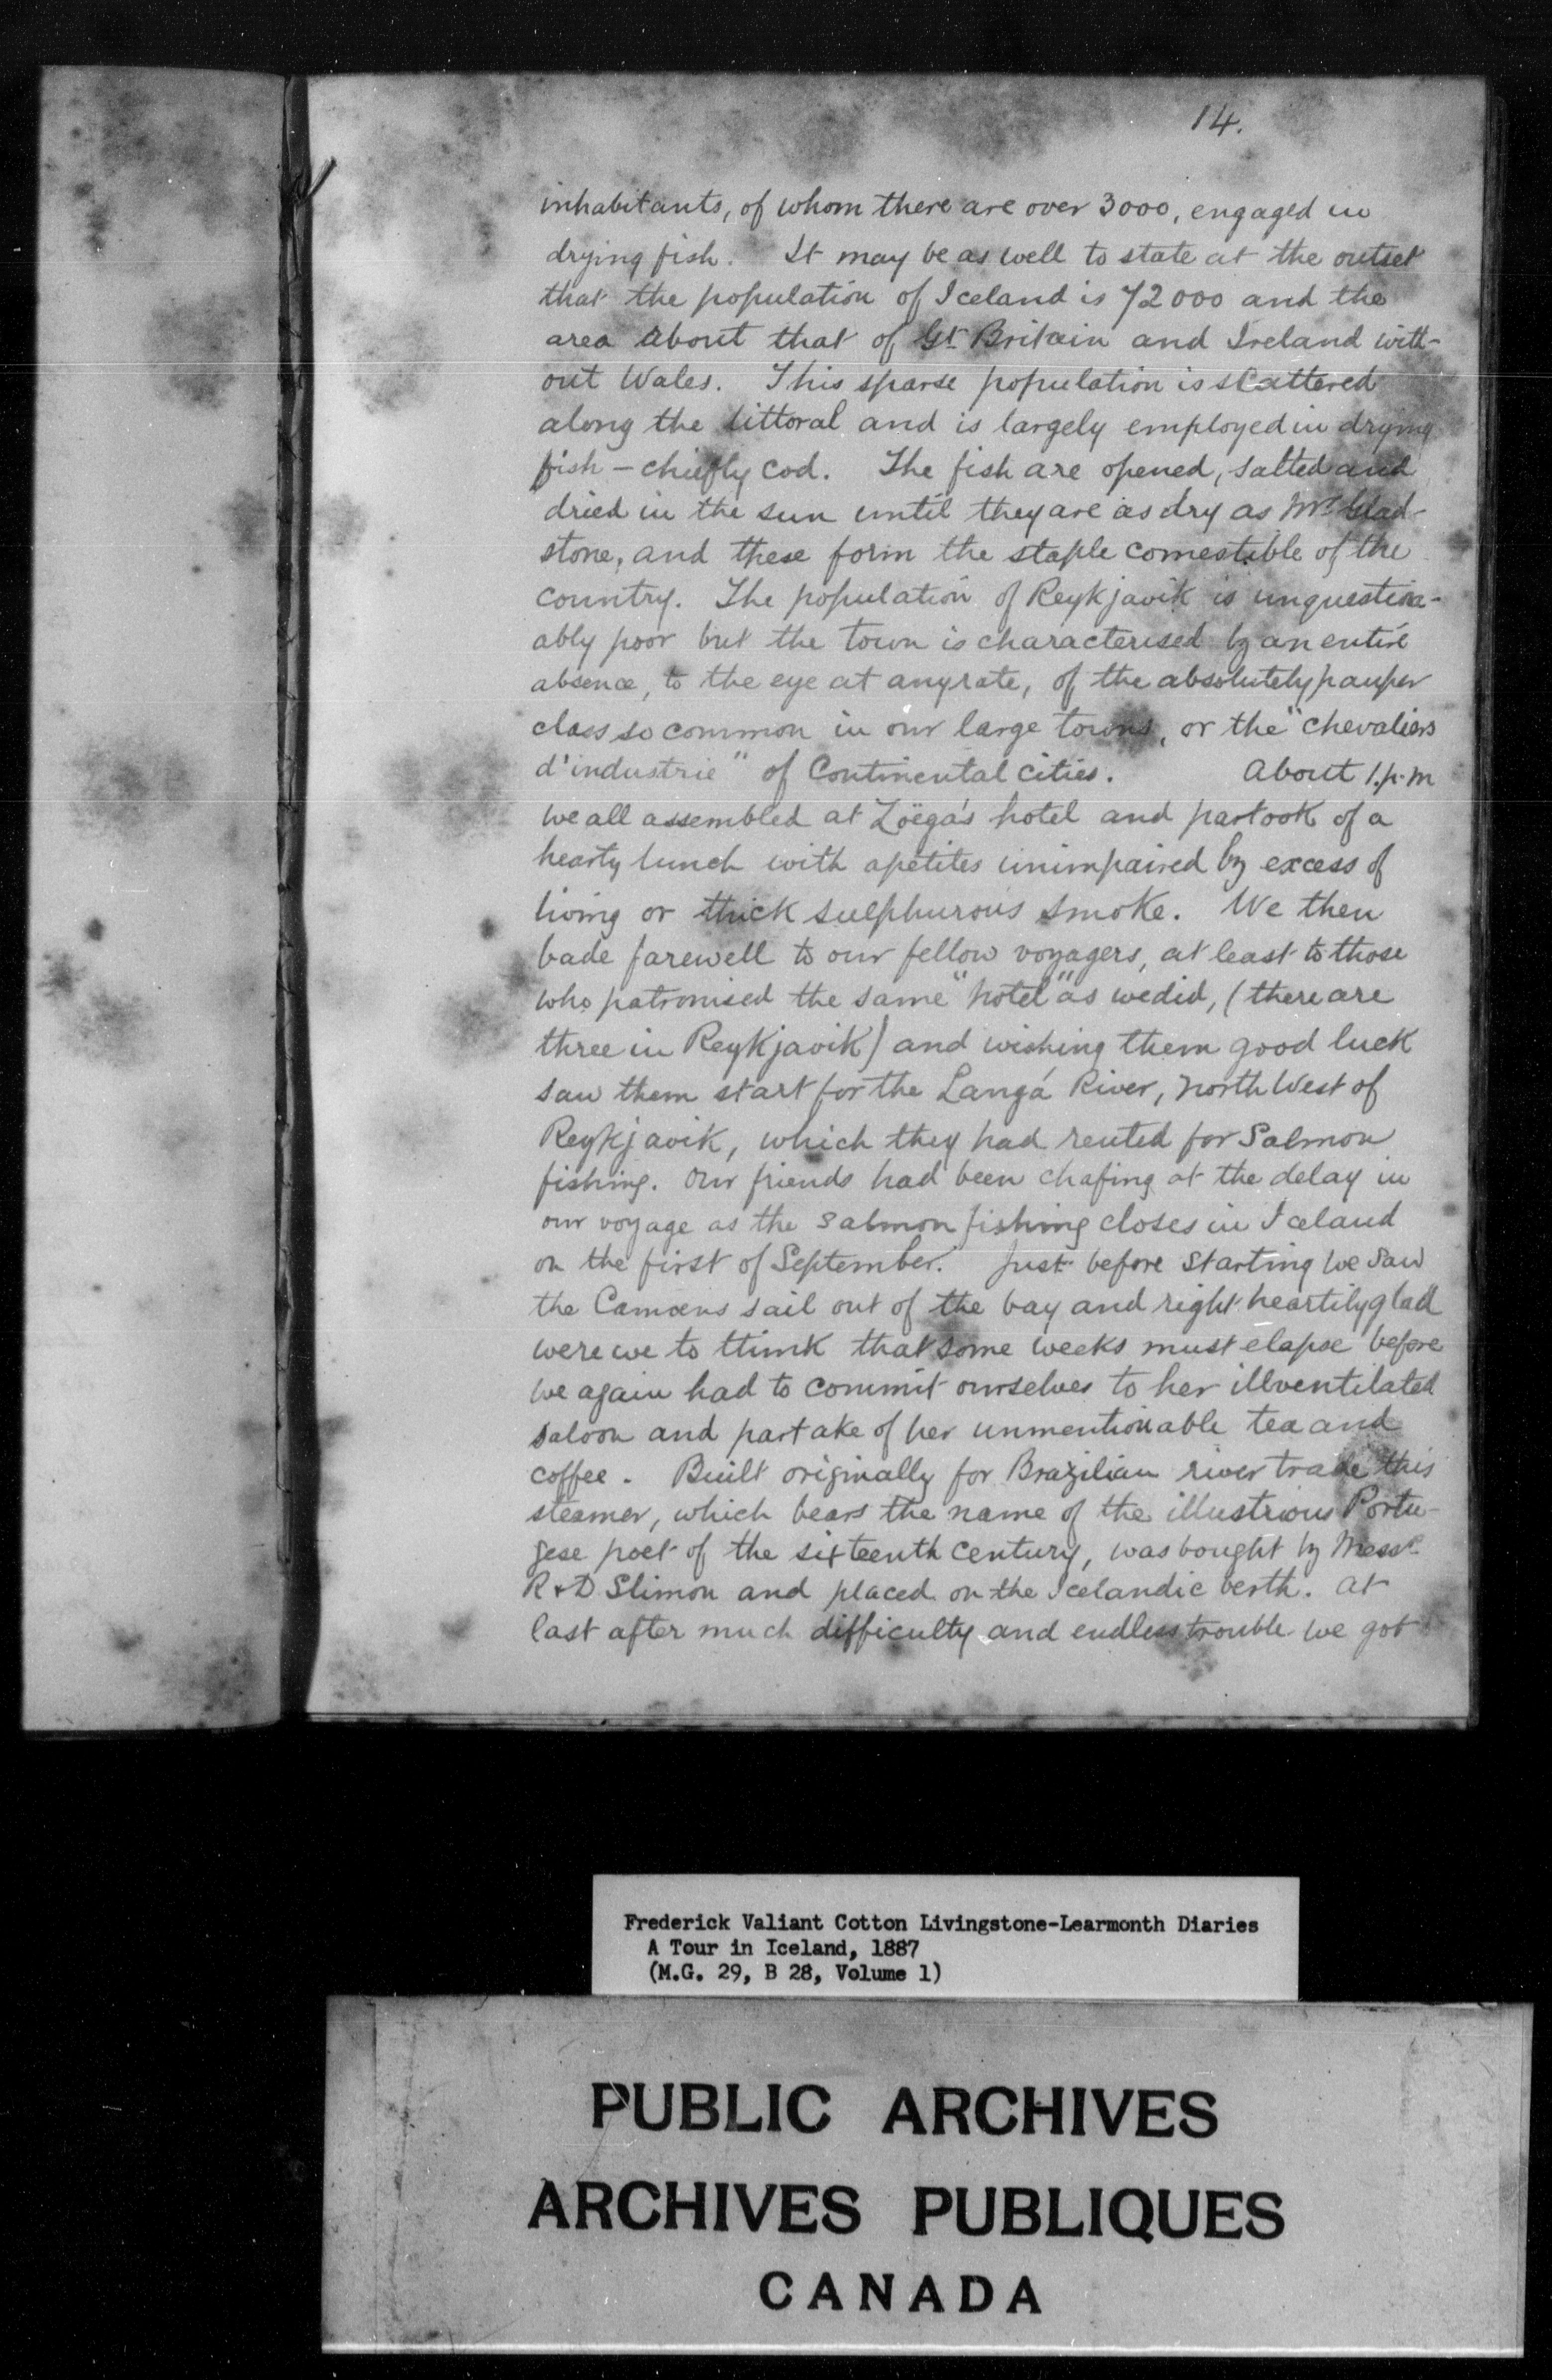 14.
inhabitants, of whom there are over 3000, engaged in
drying fish. It may be as well to state at the outset
that the population of Iceland is 72000 and the
area about that of Gt Britain and Ireland with-
out Wales. This sparse population is scattered
along the littoral and is largely employed in drying
fish – chiefly cod. The fish are opened, salted and
dried in the sun until they are as dry as Mr Glad-
stone, and these form the staple comestible of the
country. The population of Reykjavik is unquestion-
ably poor but the town is characterised by an entire
absence, to the eye at anyrate, of the absolutely pauper
class so common in our large towns, or the "chevaliers
d'industrie" of Continental cities. About 1.p.m
we all assembled at Zöega's hotel and partook of a
hearty lunch with apetites unimpaired by excess of
living or thick sulphurous smoke. We then
bade farewell to our fellow voyagers, at least to those
who patronised the same "hotel" as we did, (there are
three in Reykjavik) and wishing them good luck
saw them start for the Langá River, North West of
Reykjavik, which they had rented for Salmon
fishing. Our friends had been chafing at the delay in
our voyage as the Salmon fishing closes in Iceland
on the first of September. Just before starting we saw
the Camoens sail out of the bay and right heartily glad
were we to think that some weeks must elapse before
we again had to commit ourselves to her illventilated
saloon and partake of her unmentionable tea and
coffee. Built originally for Brazilian river trade this
steamer, which bears the name of the illustrious Portu-
gese poet of the sixteenth century, was bought by Messrs
R & D Slimon and placed on the Icelandic berth. At
last after much difficulty and endless trouble we got
Frederick Valiant Cotton Livingstone-Learmonth Diaries
A Tour in Iceland, 1887
(M.G. 29, B 28, Volume 1)
PUBLIC ARCHIVES
ARCHIVES PUBLIQUES
CANADA